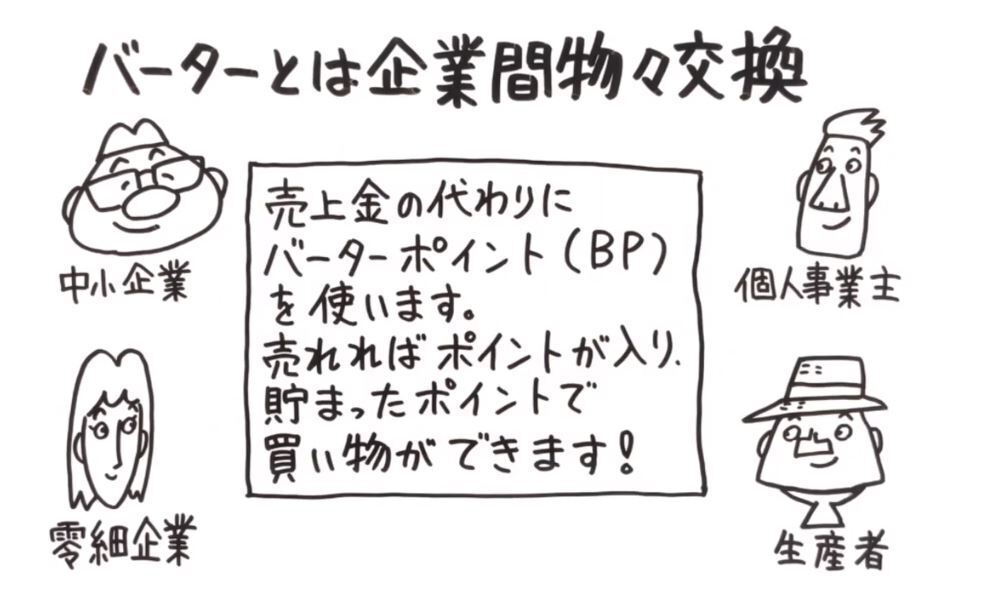 バーターとは企業間物々交換
中小企業
個人事業士
売上金の代わりに
バーターポイント(BP)
を使います。
売れればポイントが入り、
貯まったポイントで
買い物ができます!
零細企業
生産者